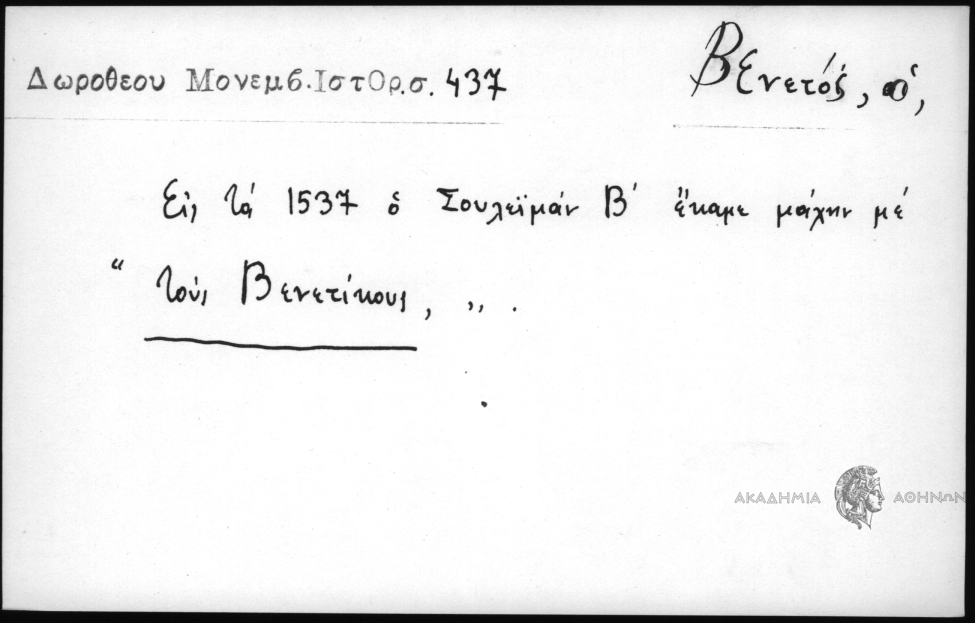 Δωροθεου Μονεμβ.ΙστΟρ.σ. 437
Βενετός, ὁ,
Εἰς τά 1537 ὁ Σουλεϊμάν Β΄ ἔκαμε μάχην μέ
“ τούς Βενετίκους, ,, .
ΑΚΑΔΗΜΙΑ ΑΘΗΝΩΝ